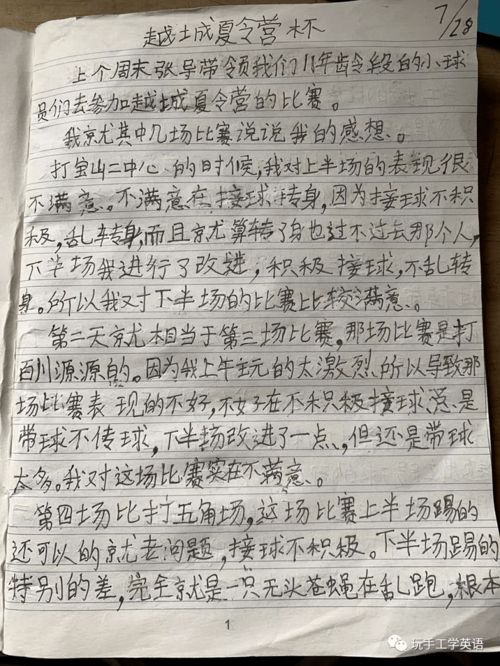 越土成夏令营杯
7/28
上个周末张导带领我们11年龄段的小球
员们去参加越土成夏令营的比赛。
我京尤其中几场比赛说说我的感想。
打宝山二中心的时候,我对上半场的表现很
不满意。不满意在接球转身,因为接球不积
极,乱转身,而且京尤算转了身也过不过去那个人,
下半场我进行了改进,积极接球,不乱转
身。所以我对下半场的比赛比较满意。
第二天京尤相当于第三场比赛,那场比赛是打
百川源源的。因为我上午玩的太激烈所以导致那
场比赛表现的不好,不好在不积极接球总是
带球不传球,下半场改进了一点,但还是带球
太多。我对这场比赛实在不满意。
第四场比打五角场,这场比赛上半场踢的
还可以的就老问题,接球不积极。下半场踢的
特别的差,完全京尤是一只无头苍蝇在乱跑,根本
1
玩手工学英语